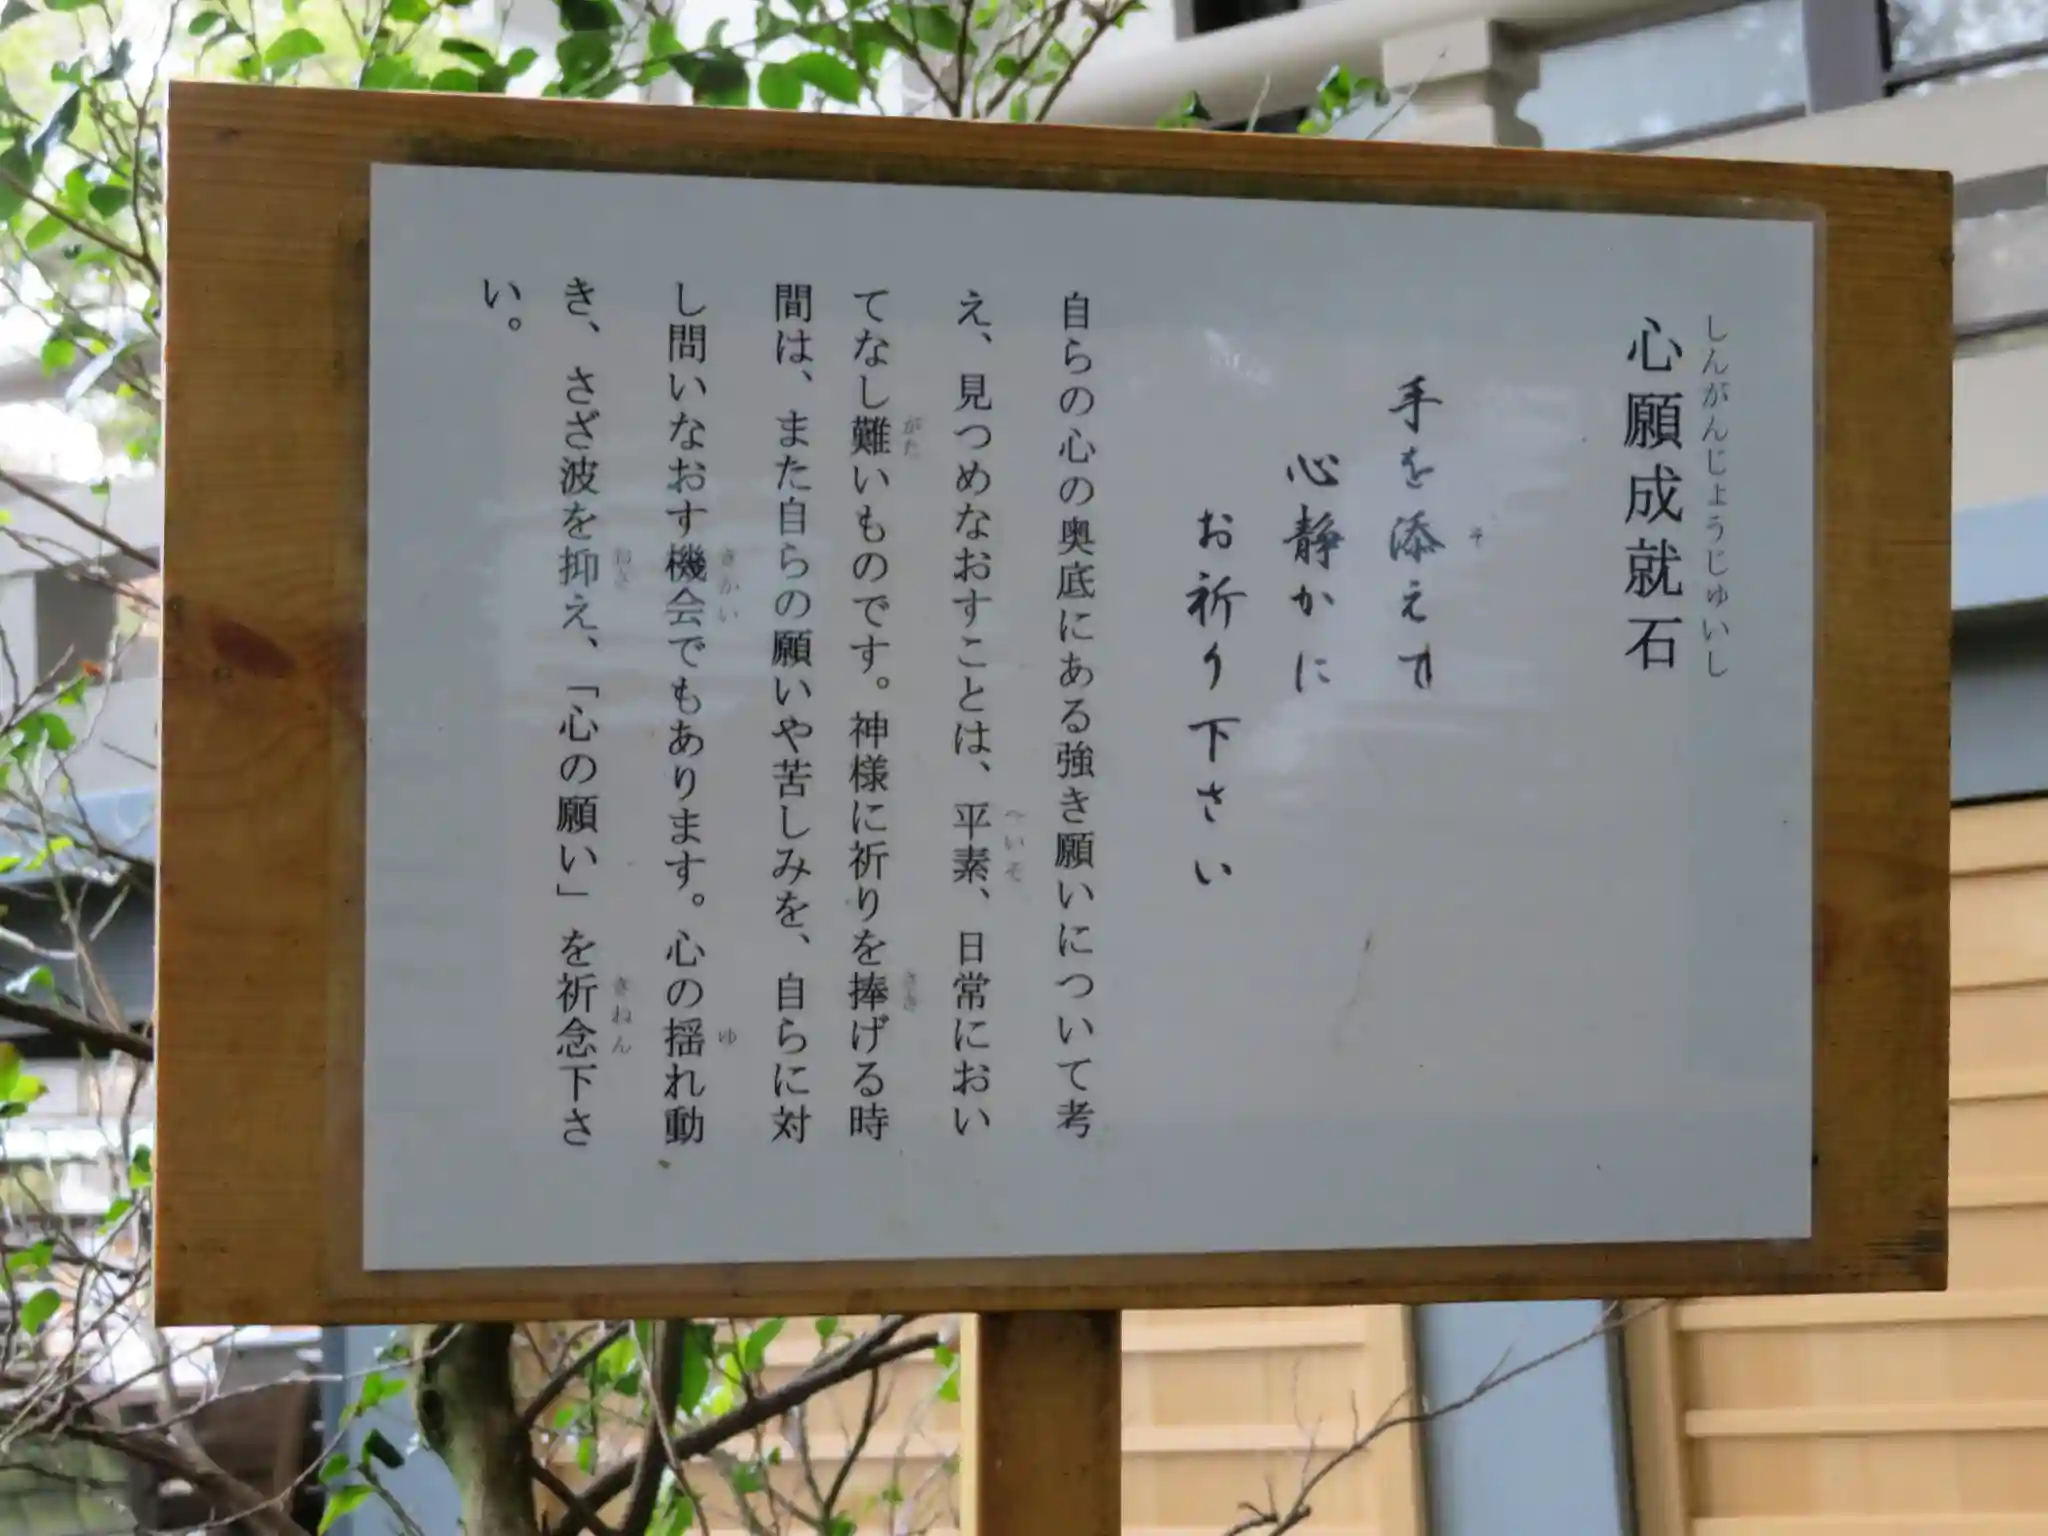 しんがんじょうじゅいし
心願成就石
そ
手を添えて
心静かに
お祈り下さい
自らの心の奥底にある強き願いについて考
え、見つめなおすことは、平素、日常におい
へいそ
てなし難いものです。神様に祈りを捧げる時
がた
ささ
間は、また自らの願いや苦しみを、自らに対
し問いなおす機会でもあります。心の揺れ動
きかい
ゆ
き、さざ波を抑え、「心の願い」を祈念下さ
おさ
きねん
い。